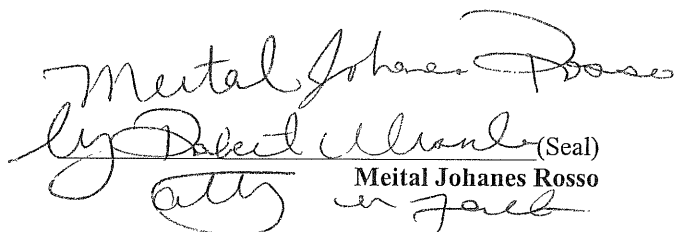 Meital Johanes Rosso
by Robert (Seal)
Meital Johanes Rosso
atty in fact